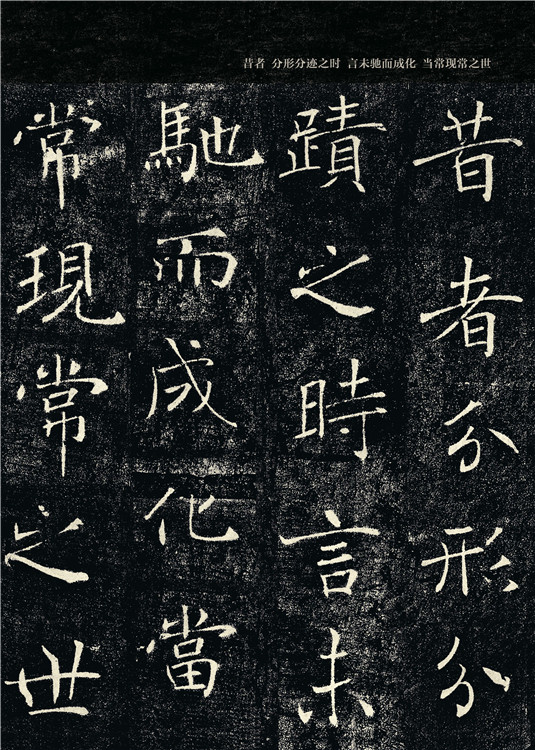 昔者 分形分迹之时 言未驰而成化 当常现常之世
昔者分形分
蹟之時言未
馳而成化當
常現常之世